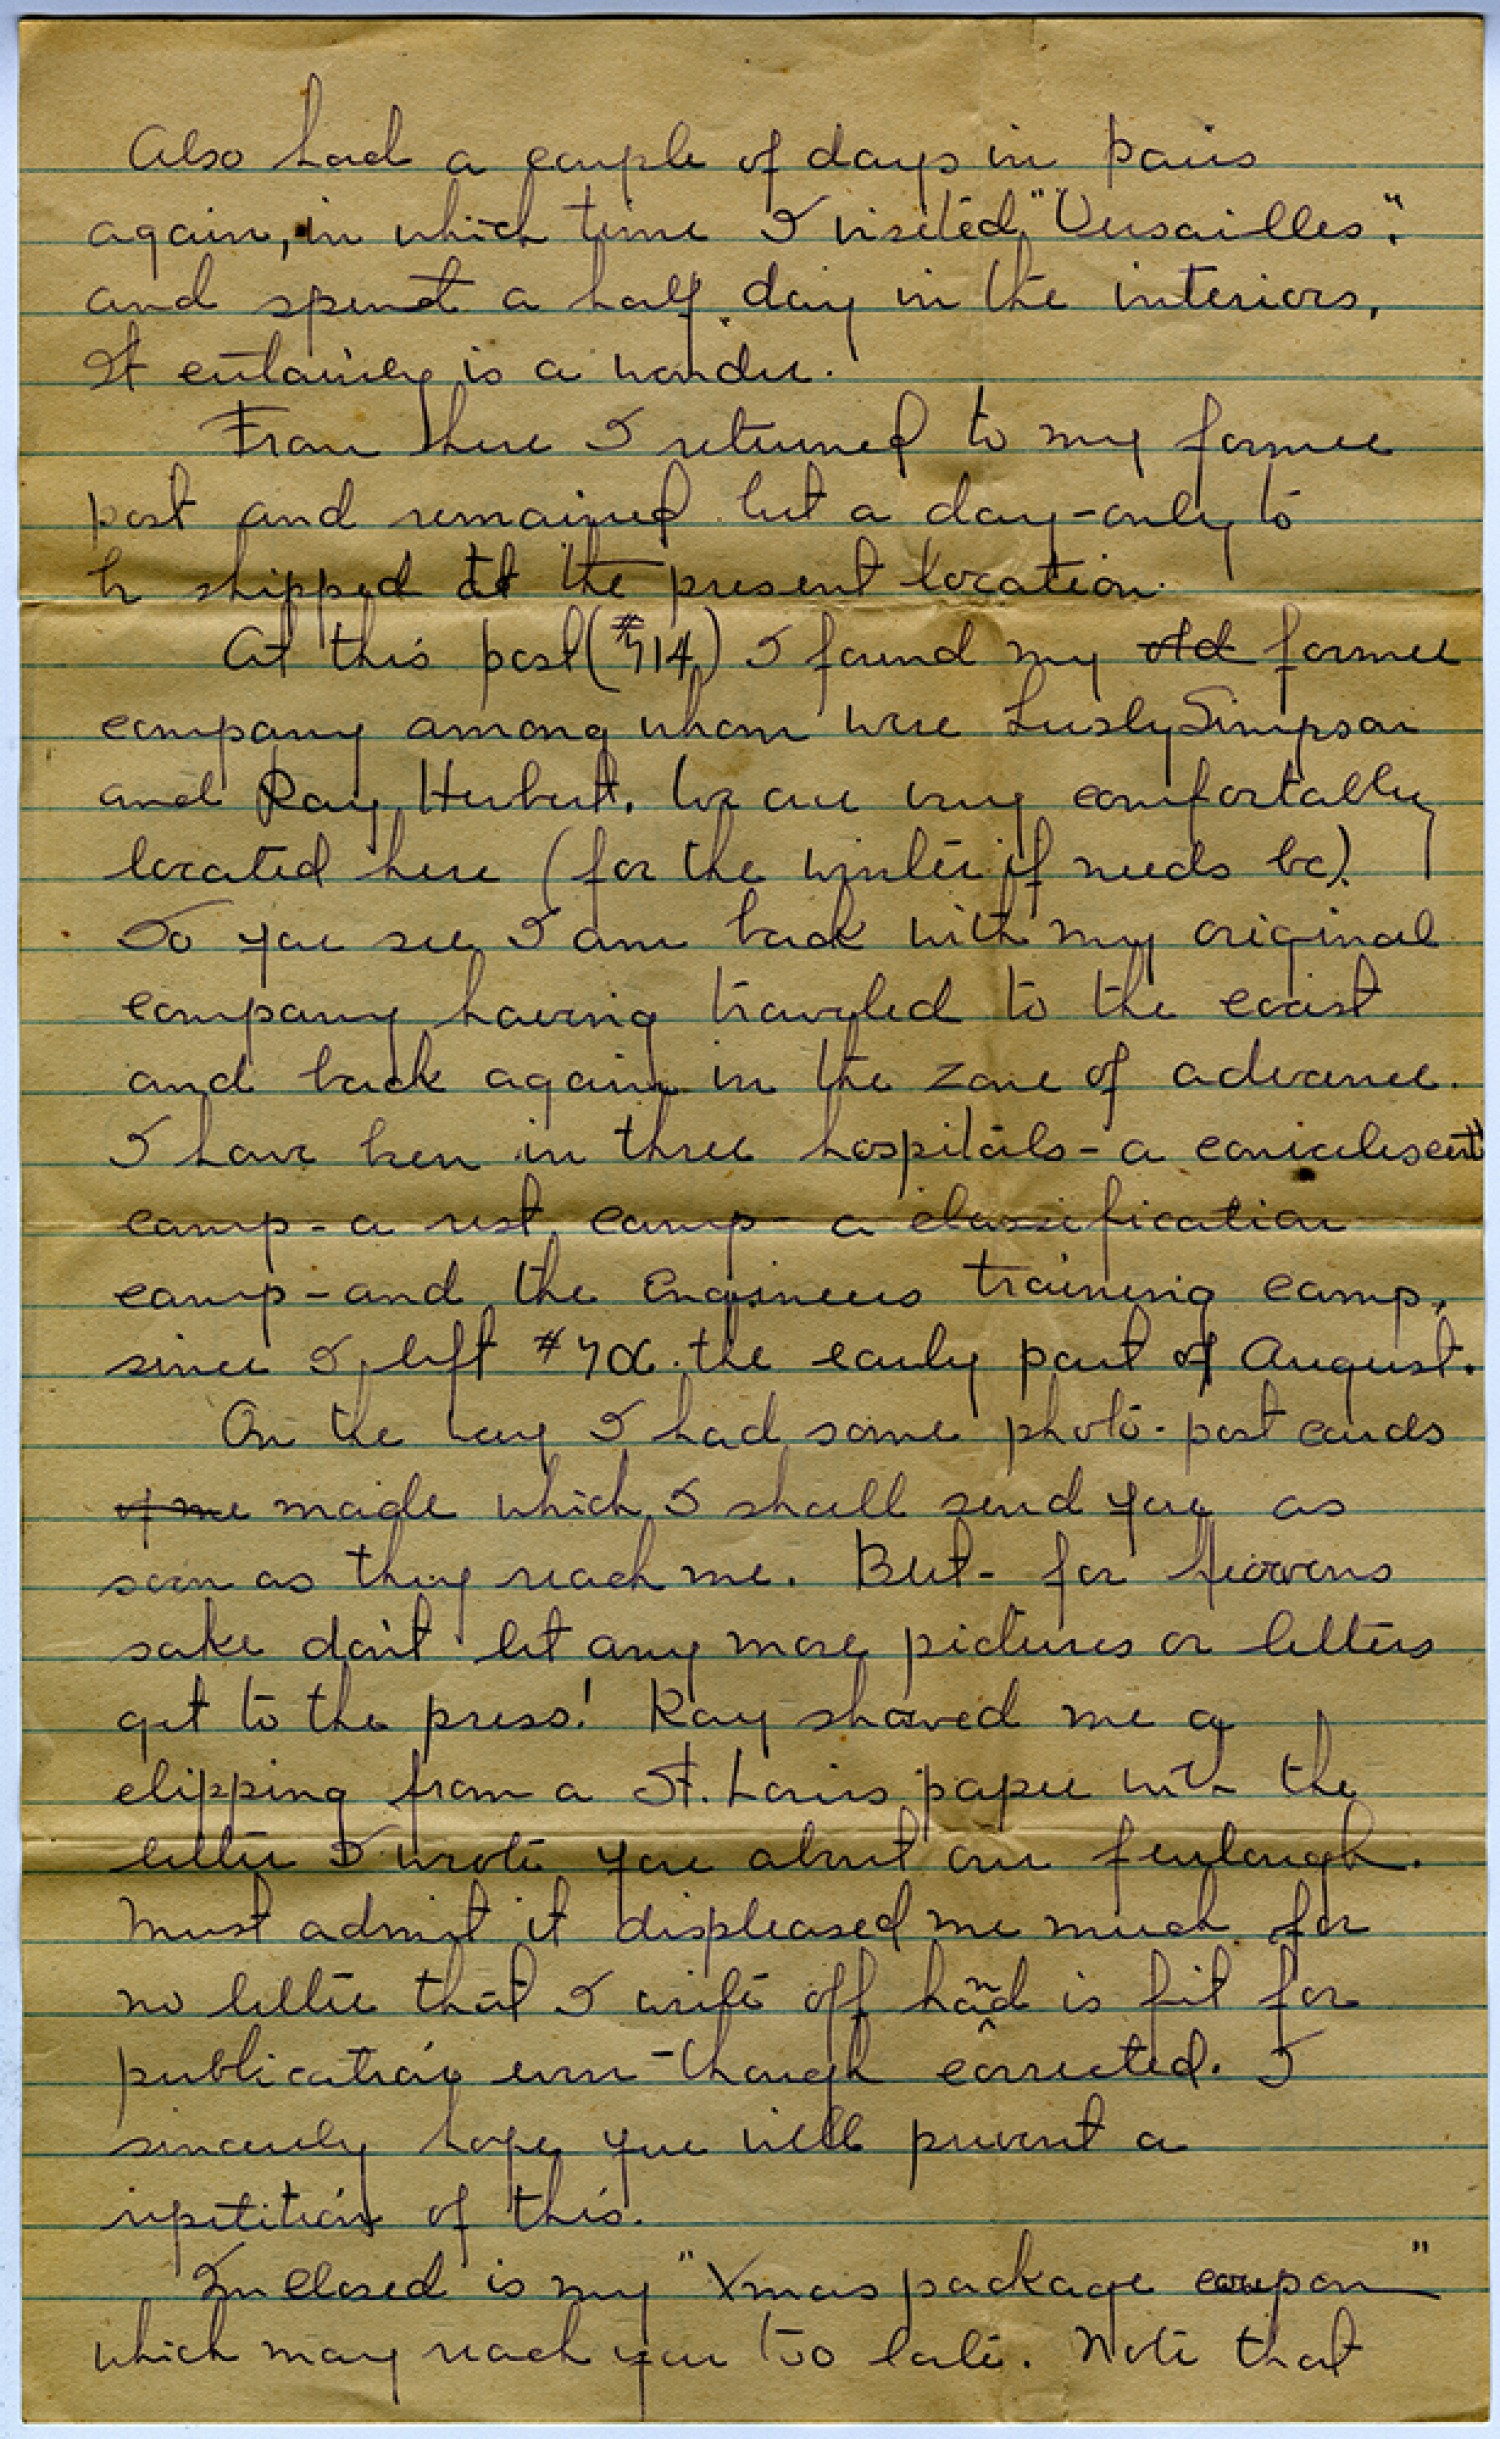 Also had a couple of days in Paris
again, in which time I visited "Versailles".
and spent a half day in the interiors,
It certainley is a wonder.
From there I returned to my former
post and remained but a day-only to
be shipped to the present location.
At this post (#714) I found my old former
company among whom were Lusly Simpson
and Ray Herbert. We are very comfortably
located here (for the winter if needs be).
So you see I am back with my original
company having traveled to the coast
and back again in the zone of advance.
I have been in three hospitals - a convalescent"
camp - a rest camp - a classification
camp - and the Engineers training camp,
since I left the early part of August.
On the way I had some photo-post cards
of me made which I shall send you as
soon as they reach me. But - for Heavens
sake don't let any more pictures or letters
get to the press! Ray showed me a
clipping from a St. Louis paper with the
letter I wrote you about our furlough.
Must admit it displeased me much for
no letter that I write off hand is fit for
publication even-though corrected. I
sincerely hope you will prevent a
repetition of this.
Inclosed is my "Xmas package coupon"
which may reach you too late. Note that